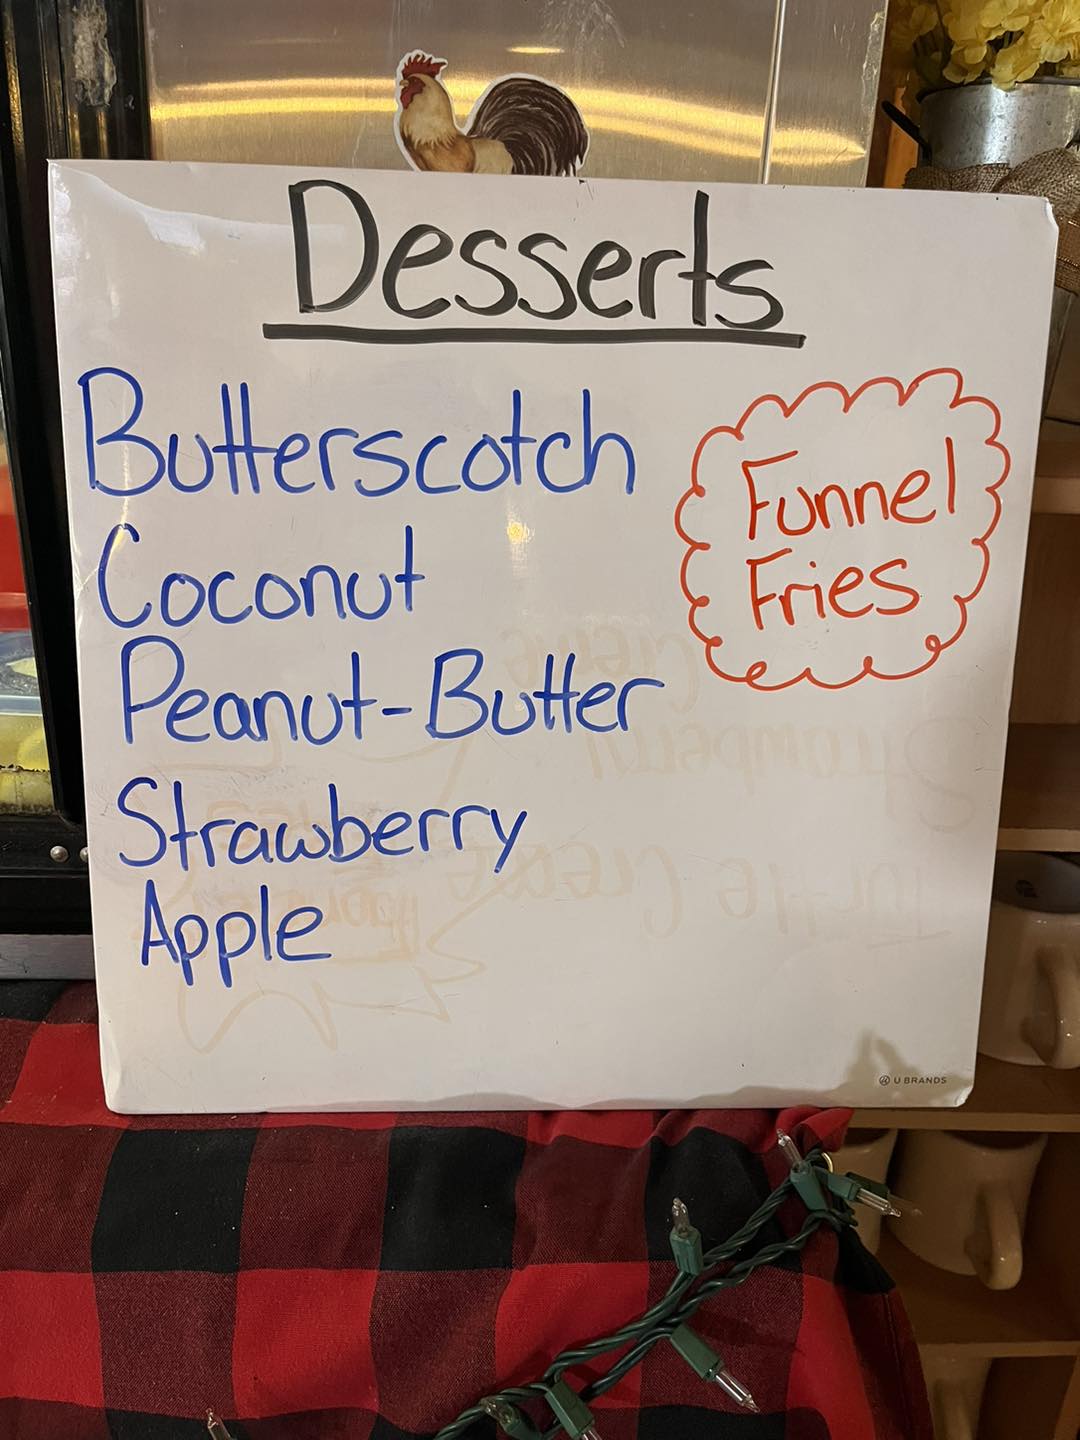 Desserts
Butterscotch
Coconut
Peanut-Butter
Strawberry
Apple
Funnel
Fries
U BRANDS